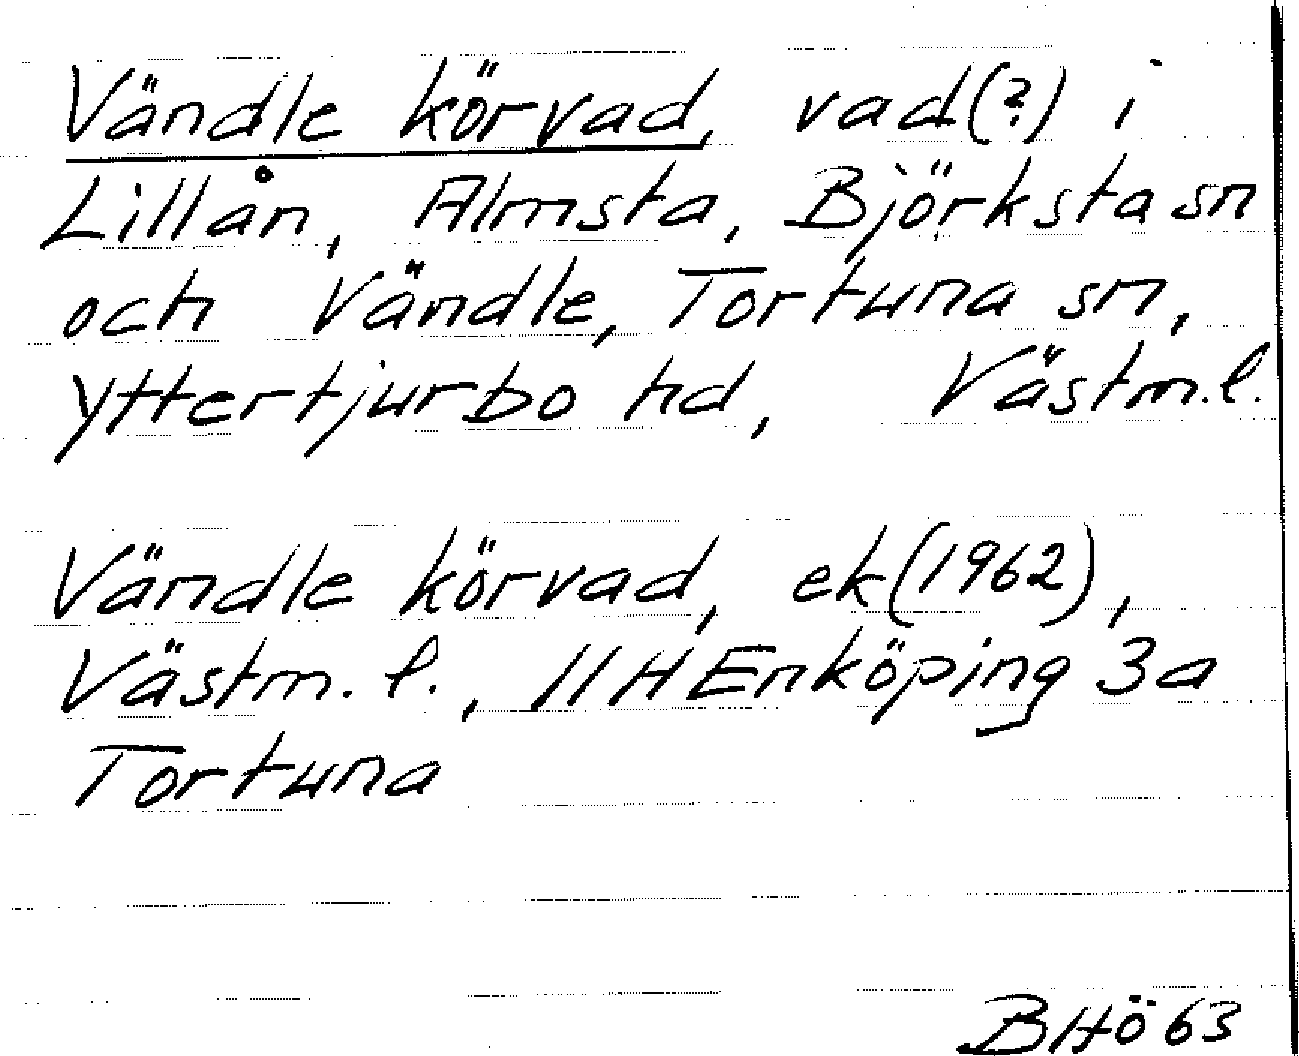 Vändle körvad, vad(?) i
Lillån, Almsta, Björksta sn
och Vändle, Tortuna sn,
Yttertjurbo hd, Västm.l.
Vändle körvad, ek(1962),
Västm. l., 11H Enköping 3a
Tortuna
BHö 63